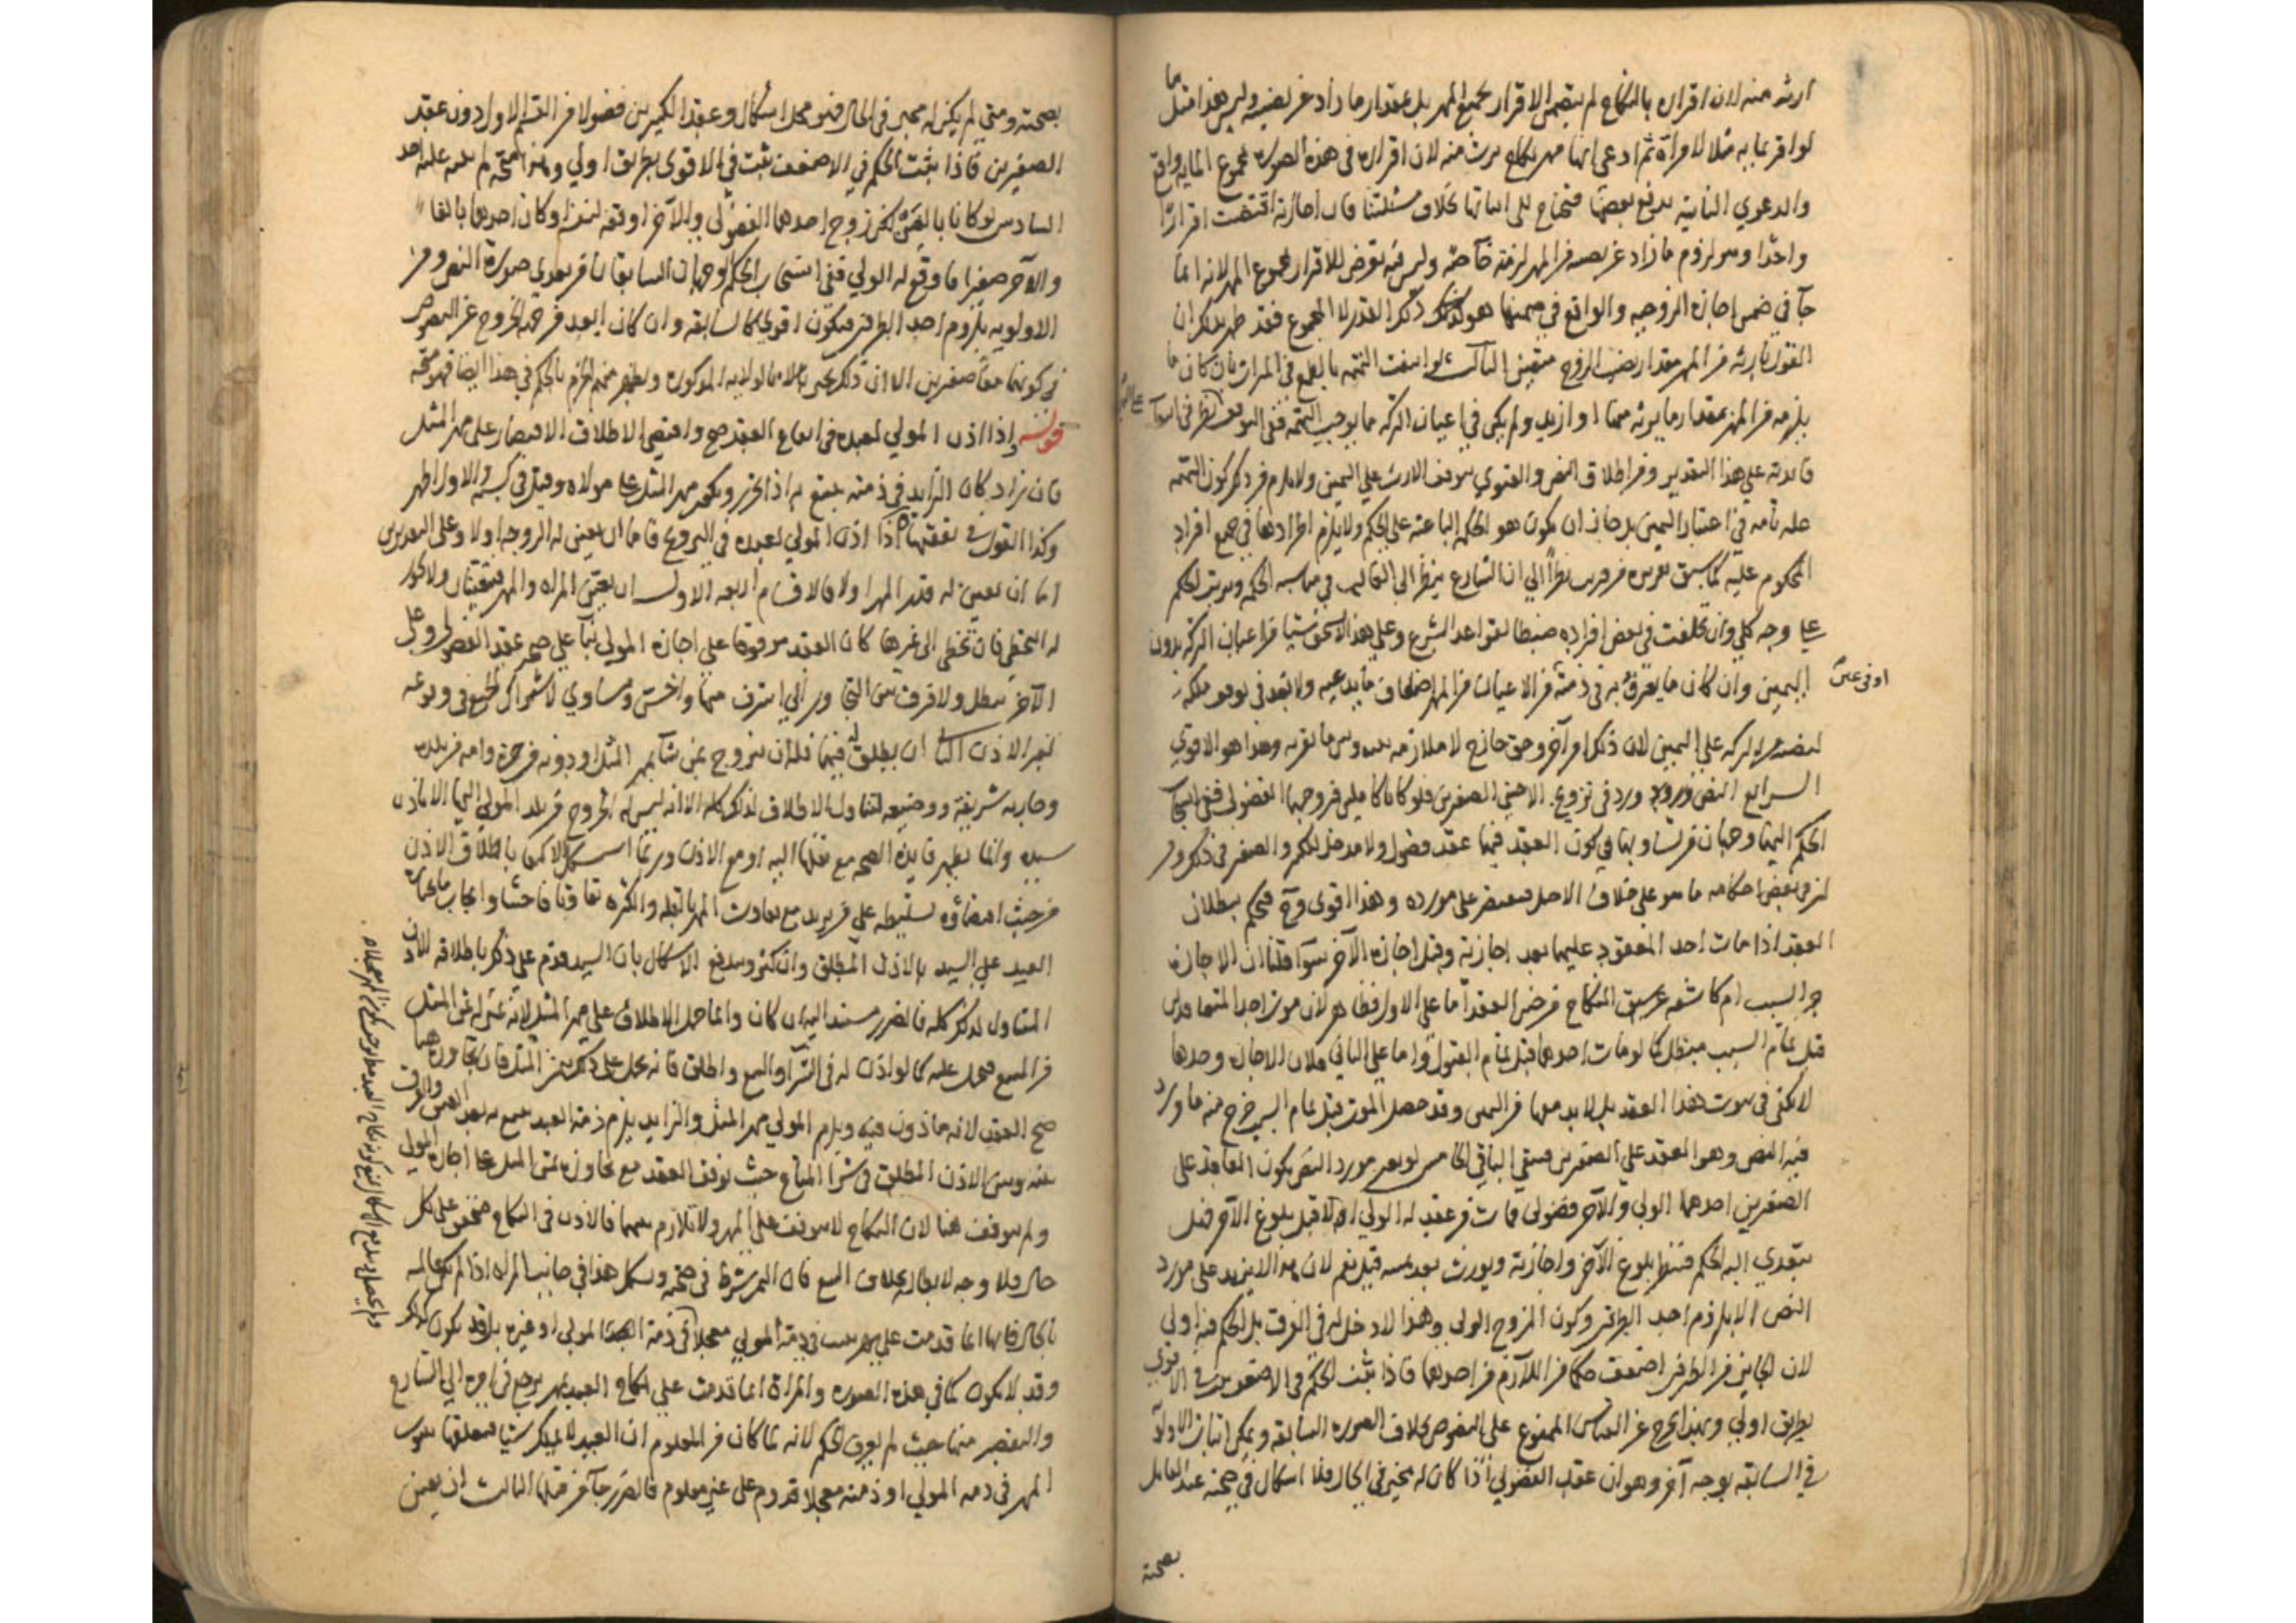 ارثه منه لان اقراره بالنكاح لم يتضمن الاقرار بجميع المهر بل بمقدار ما زاد عن نصيبه وليس هذا مثل ما
لو اقر بمايه مثلا لامراة ثم ادعى انها مهر نكاح يرث منه لان اقراره في هذه الصورة بمجموع المايه واقع
والدعوي الثانية بعضها فتحتاج الى اثباتها بخلاف مسئلتنا فان اجازته اقتضت اقرارا
واحدا وهو لزوم ما زاد عن نصيبه من المهر لزمته خاصة وليس فيه تعرض للاقرار بمجموع المهر لانه انما
جآ في ضمن اجازة الزوجيه والواقع في ضمنها هو ذلك القدر لا المجموع فقد ظهر بذلك ان
القول بارثه من المهر مقدار نصيب الزوج متعين الثالث لو انتفت التهمه بالطمع في الميراث بان كان ما
يلزمه من المهر بمقدار ما يرثه منها او ازيد ولم يكن في اعيان التركه ما يوجب التهمه ففي اليمين نظر من انتفآ
على التركة
فايدته على هذا التقدير ومن اطلاق النص والفتوي بتوقف الارث على اليمين ولا يلزم من ذكر كون التهمه
علة تامه في اعتبار اليمين بل جاز ان يكون هو الحكمة الباعثه على الحكم ولا يلزم اطرادها في جميع افراد
المحكوم عليه كما سبق تقريره من قريب نظرا الي ان الشارع ينظر الى الغالب في مناسبه الحكمه ويرتب الحكم
على وجه كلي وان تخلفت في بعض افراده ضبطا لقواعد الشرع وعلى هذا لا يستحق شيا من اعيان التركه بدون
اليمين وان كان ما يعترف به في ذمته من الاعيان من المهر اضعاف ما يدعيه ولا بعد في توقف ملكه
او في عين
لنصيبه من التركه على اليمين لان ذلك امر آخر وحق خارج لا ملازمه بينه وبين ما يقر به وهذا هو الاقوي
الرابع النص ورد في تزويج الاجنبي الصغيرين فلو كانا كاملين فزوجهما الفضولي ففي انسحاب
الحكم اليهما وجهان من تساويهما في كون العقد فيهما عقد فضولي ولا مدخل للكبر والصغر في ذلك ومن
ان في بعض احكامه ما هو على خلاف الاصل فيقتصر على مورده وهذا اقوى وح فيحكم ببطلان
العقد اذا مات احد المعقود عليهما بعد اجازته وقبل اجازة الآخر سوآ قلنا ان الاجازة
جز السبب ام كاشفه عن سبق النكاح من حين العقد اما على الاول فظاهر لان موت احد المتعاقدين
قبل تمام السبب مبطل كما لو مات احدهما قبل تمام القبول واما على الثاني فلان الاجازة وحدها
لا تكفي في ثبوت هذا العقد بل لابد معها من اليمين وقد حصل الموت قبل تمام السبب خرج منه ما ورد
فيه النص وهو العقد على الصغيرين فيبقى الباقي الخامس لو تغير مورد النص بكون العاقد على
الصغيرين احدهما الولي والآخر فضولي فمات من عقد له الولي اولا قبل بلوغ الآخر فهل
يتعدي اليه الحكم فينتظر بلوغ الآخر واجازته ويورث بعد يمينه قيل نعم لان هذا لا يزيد على مورد
النص الا بلزوم احد الطرفين وكون المزوج الولي وهذا لا دخل له في الفرق بل الحكم فيه اولي
لان الجايز من الطرفين اضعف حكما من اللازم من احدهما فاذا ثبت الحكم في الاضعف ثبت في الاقوي
بطريق اولي وبهذا يخرج عن القياس الممنوع على المنصوص بخلاف الصورة السابقة ويمكن اثبات الاولويه
في السابقه بوجه آخر وهو ان عقد الفضولي اذا كان له مجيز في الحال فلا اشكال في صحته عند القايل
بصحته
بصحته ومتى لم يكن له مجيز في الحال فهو محل اشكال وعقد الكبيرين فضولا من القسم الاول دون عقد
الصغيرين فاذا ثبت الحكم في الاضعف ثبت في الاقوى بطريق اولي وهذا متجه لم ينبه عليه احد
السادس لو كانا بالغين لكن زوج احدهما الفضولي والآخر اوقعه لنفسه او كان احدهما بالغا
والآخر صغيرا فاوقع له الولي ففي انسحاب الحكم الوجهان السابقان من تعدي صورة النص ومن
الاولويه بلزوم احد الطرفين فيكون اقوي كالسابقه وان كان ابعد من جهة الخروج عن المنصوص
في كونهما معا صغيرين الا ان ذلك يجبر بالاولويه المذكوره ويظهر منهم الجزم بالحكم في هذا ايضا فهو متجه
قوله واذا اذن المولي لعبده في ايقاع العقد صح واقتضى الاطلاق الاقتصار على مهر المثل
فان زاد كان الزايد في ذمته يتبع به اذا تحرر ويكون مهر المثل على مولاه وقيل في كسبه والاول اظهر
وكذا القول في نفقتها اذا اذن المولي لعبده في التزويج فاما ان يعين له الزوجه اولا وعلى التقديرين
اما ان يعين له قدر المهر اولا فالاقسام اربعه الاول ان يعين المراه والمهر فيتعينان ولا يجوز
له التخطي فان تخطى الى غيرها كان العقد موقوفا على اجازة المولي بنآ على صحة عقد الفضولي وعلى
الآخر يبطل ولا فرق بين التجاوز الي اشرف منها واخس ومساوي لاشتراك الجميع في وقوعه
بغير الاذن الثاني ان يطلق له فيهما فله ان يتزوج بمن شآ بمهر المثل او دونه من حرة وامه من بلده
وخارجه شريفة ووضيعه لتناول الاطلاق لذلك كله الا انه ليس له الخروج من بلد المولي اليها الا باذن
سيده وانما يظهر فايدة الصحه مع نقلها اليه او مع الاذن وربما استشكل الاكتفا باطلاق الاذن
من حيث افضاؤه تسليطه على من يريد مع تفاوت المهر بالقله والكثره تفاوتا فاحشا وايجاب ما يختاره
العبد على السيد بالاذن المطلق وان كثر ويندفع الاشكال بان السيد قدم على ذلك باطلاقه الاذن
المتناول لذلك كله فالضرر مستند اليه ان كان وانما حمل الاطلاق على مهر المثل لانه بمنزله ثمن المثل
في المبيع فيحمل عليه كما لو اذن له في الشرآ والبيع واطلق فانه يحمل على ذلك ثمن المثل فان تجاوزه هنا
صح العقد لانه ماذون فيه ويلزم المولي مهر المثل والزايد يلزم ذمة العبد يتبع به بعد العتق والفرق
بينه وبين الاذن المطلق في شرا المتاع حيث توقف العقد مع تجاوز ثمن المثل على اجازة المولي
ولم يتوقف هنا لان النكاح لا يتوقف على المهر ولا تلازم بينهما فالاذن في النكاح متحقق على كل
حال فلا وجه لابطاله بخلاف البيع فان الثمن شرط في صحته ويشكل هذا في جانب المراه اذا لم تكن عالمه
بالحال فانها انما قدمت على مهر يثبت في ذمة المولي معجلا او في ذمة المولي او غيره بل قد يكون كذلك
وقد لا يكون كما في هذه الصوره والمراة انما قدمت على نكاح العبد بمهر يرجع في امره الي الشارع
والتقصير منها حيث لم تعرف الحكم لانه لما كان من المعلوم ان العبد لا يملك شيا فتعلقها بثبوت
المهر في ذمه المولي او ذمته معجلا قدوم على غير معلوم فالضرر جآ من قبلها الثالث ان يعين